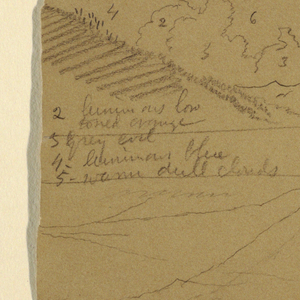 4
2
6
5
5
2 luminous low
toned orange
3 grey
4 - luminous blue
5 - warm dull clouds